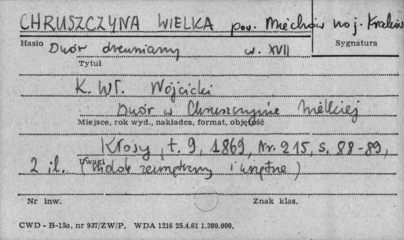 CHRUSZCZYNA WIELKA pow. Miechów woj. Kraków
Hasło Dwór drewniany w. XVII Sygnatura
Tytuł
K. Wł. Wójcicki
Dwór w Chruszczynie Wielkiej
Miejsce, rok wyd., nakładca, format, objętość
Kłosy, t. 9, 1869, Nr. 215, s. 88-89,
Uwagi
2 il. (widok zewnętrzny i wnętrze)
Nr inw. Znak klas.
CWD - B-13a, nr 937/ZW/P. WDA 1216 25.4.61 1.380.000.